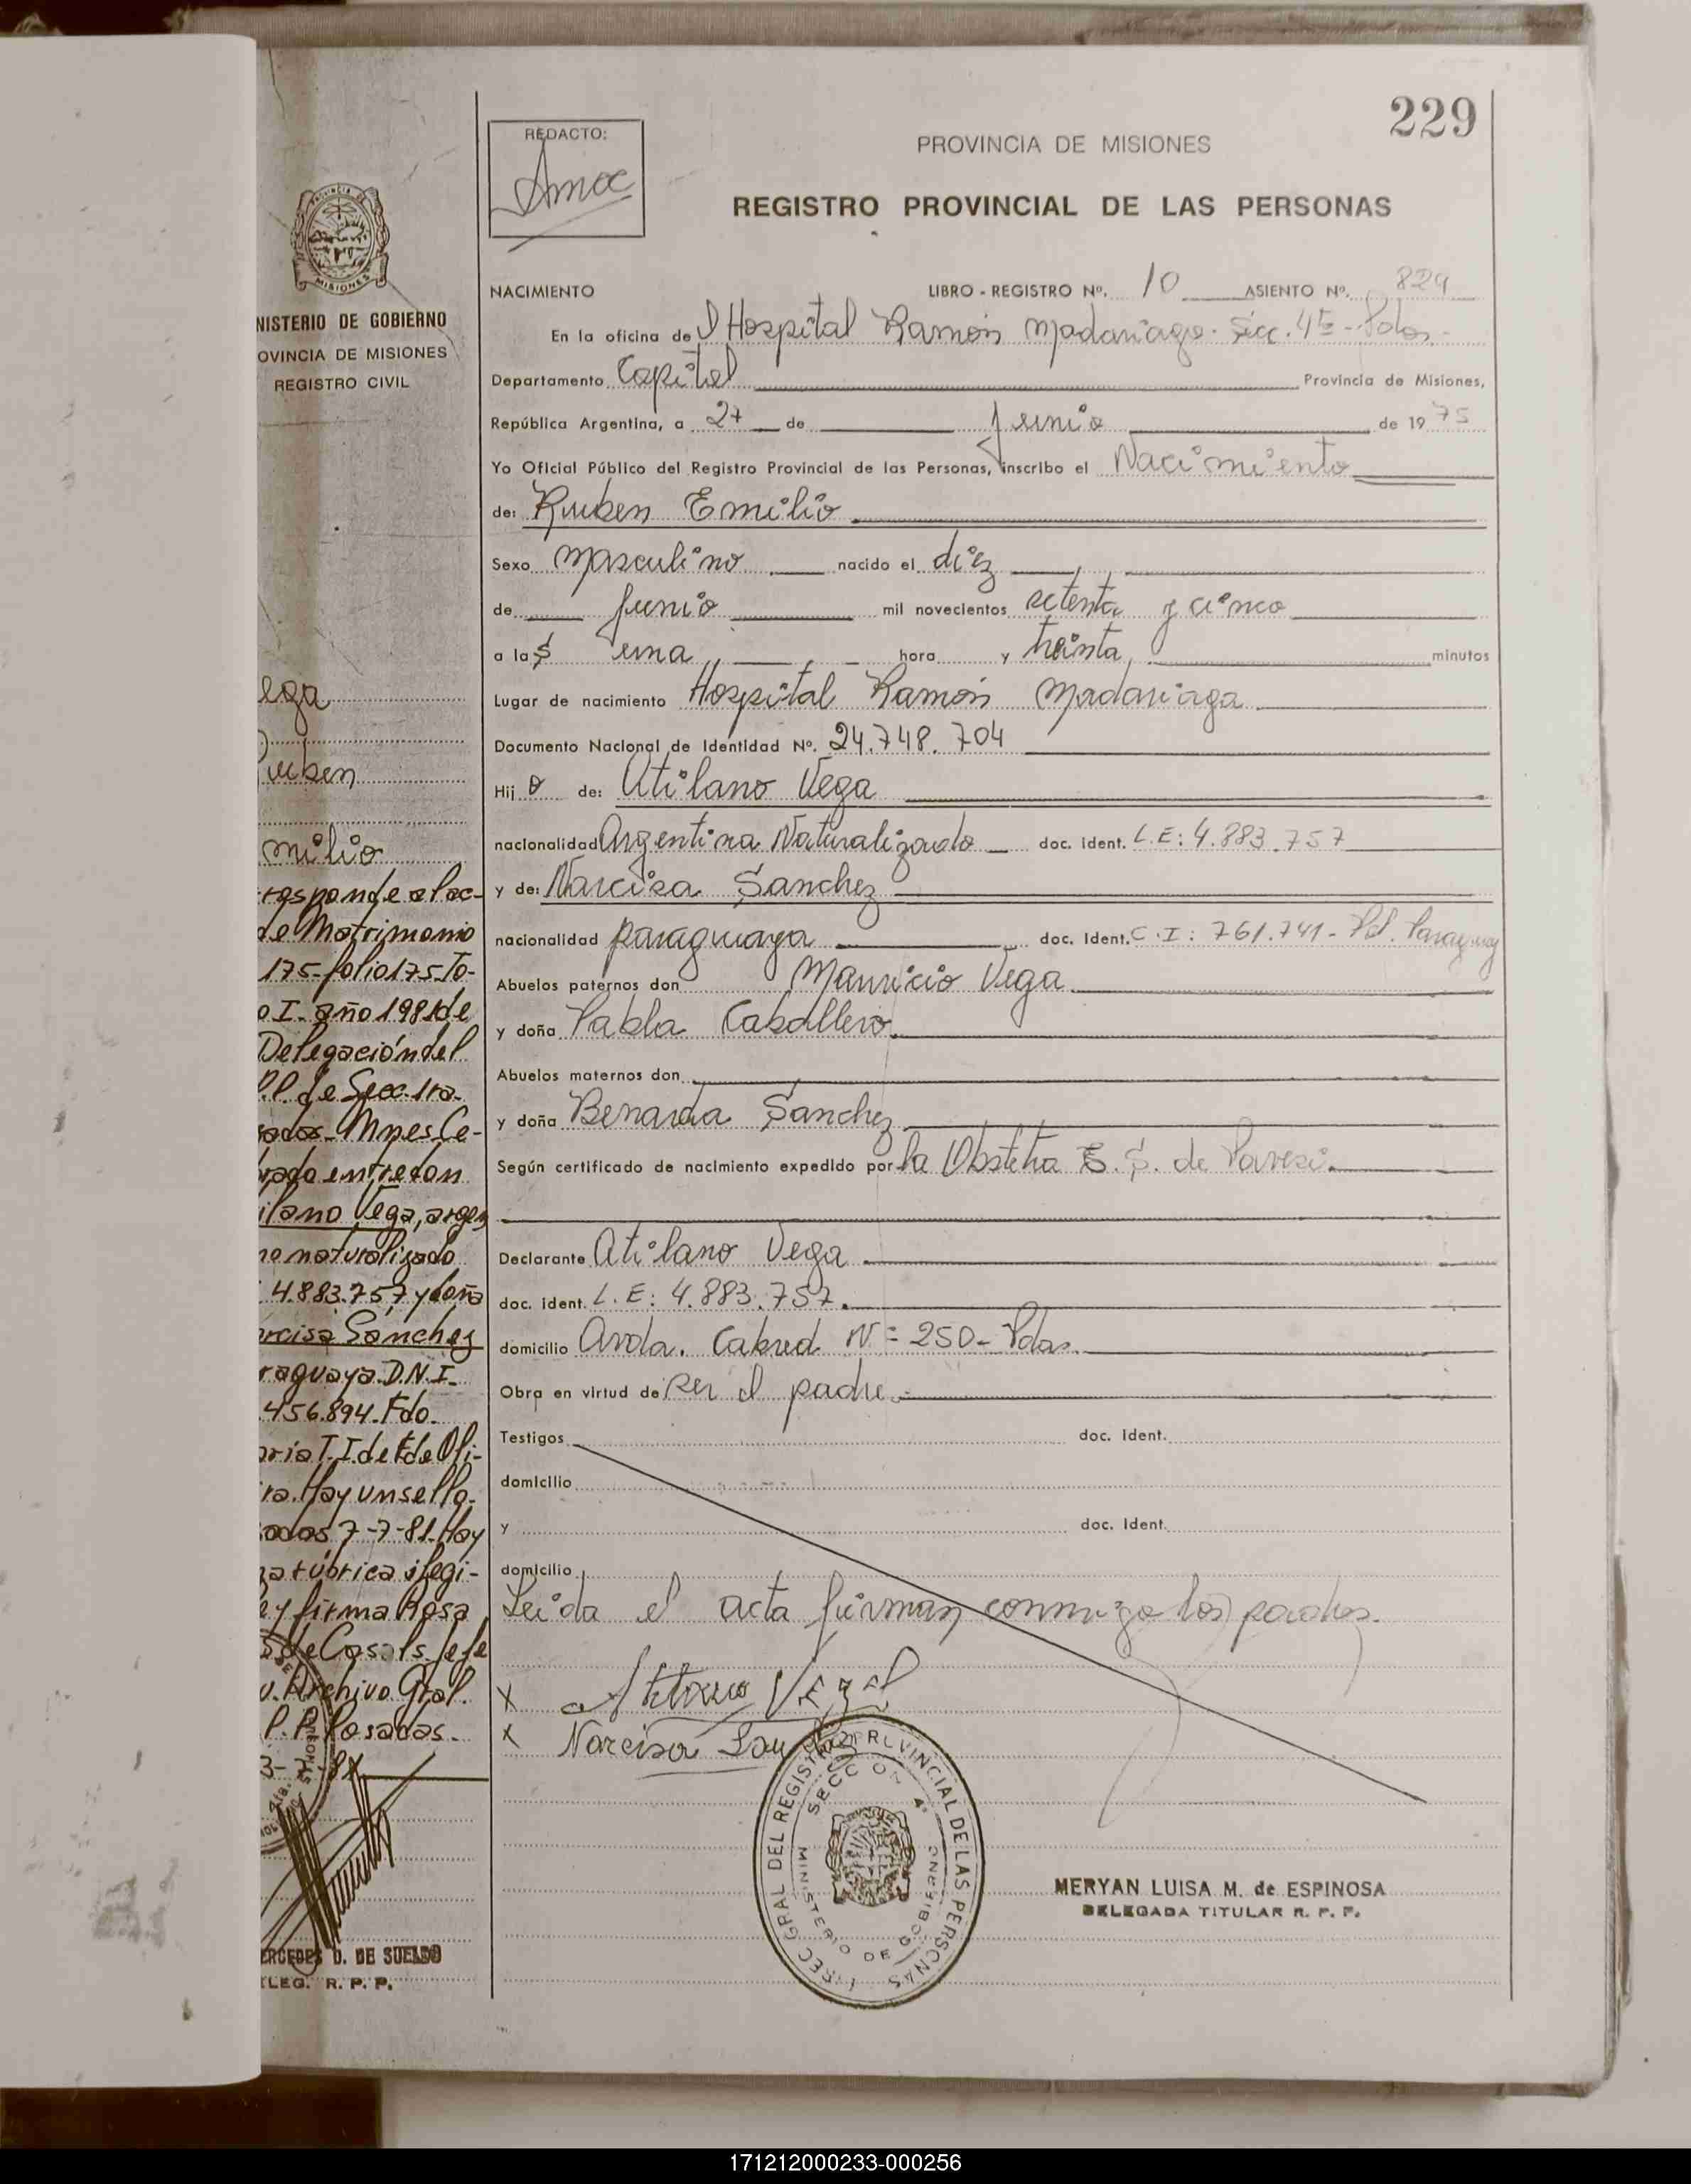 229
REDACTO:
PROVINCIA DE MISIONES
REGISTRO PROVINCIAL DE LAS PERSONAS
MISIONES
NISTERIO DE GOBIERNO
OVINCIA DE MISIONES
REGISTRO CIVIL
ega
uben
milio
rresponde al ac-
de Matrimonio
175-folio 175-To-
o I- año 1981 de
Delegación del
P.P. de Secc. 1ra.
sadas-Mnes Ce-
brado entre don
ilano Vega, argen
no naturalizado
4.883.757 y doña
arcisa Sánchez
raguaya D.N.I.
456.894. Fdo.
aría T.I. de F. de Oli-
ra. Hay un sello.
sadas 7-7-81. Hay
na rúbrica ilegi-
e y firma Rosa
de Casals. Jefe
v. Archivo Gral.
P.P. Posadas.
ERCEDES D. DE SUELDO
ELEG. R. P. P.
NACIMIENTO LIBRO - REGISTRO Nº. 10 ASIENTO Nº. 829
En la oficina del Hospital Ramón Madariaga. Secc. 4ta - Pdas.
Departamento Capital Provincia de Misiones,
República Argentina, a 27 de Junio de 1975
Yo Oficial Público del Registro Provincial de las Personas, inscribo el Nacimiento
de: Ruben Emilio
Sexo masculino nacido el diez
de Junio mil novecientos setenta y cinco
a las una hora y treinta minutos
Lugar de nacimiento Hospital Ramón Madariaga
Documento Nacional de Identidad Nº. 24.748.704
Hijo de: Atilano Vega
nacionalidad Argentina Naturalizado doc. ident. L.E: 4.883.757
y de: Narcisa Sanchez
nacionalidad paraguaya doc. ident. C.I: 761.741 - Pol. Paraguay
Abuelos paternos don Mauricio Vega
y doña Pabla Caballero
Abuelos maternos don
y doña Benarda Sanchez
Según certificado de nacimiento expedido por la Obstetra E. S. de Pavesi.
Declarante Atilano Vega
doc. ident. L.E: 4.883.757.
domicilio Avda. Cabred Nº 250 - Pdas.
Obra en virtud de ser el padre.
Testigos doc. ident.
domicilio
y doc. ident.
domicilio
Leida el acta firman conmigo los padres.
x Atilano Vega
x Narcisa Sanchez
DIREC GRAL DEL REGISTRO PROVINCIAL DE LAS PERSONAS
SECCION 4ª
MINISTERIO DE GOBIERNO
MERYAN LUISA M. de ESPINOSA
DELEGADA TITULAR R. P. P.
171212000233-000256